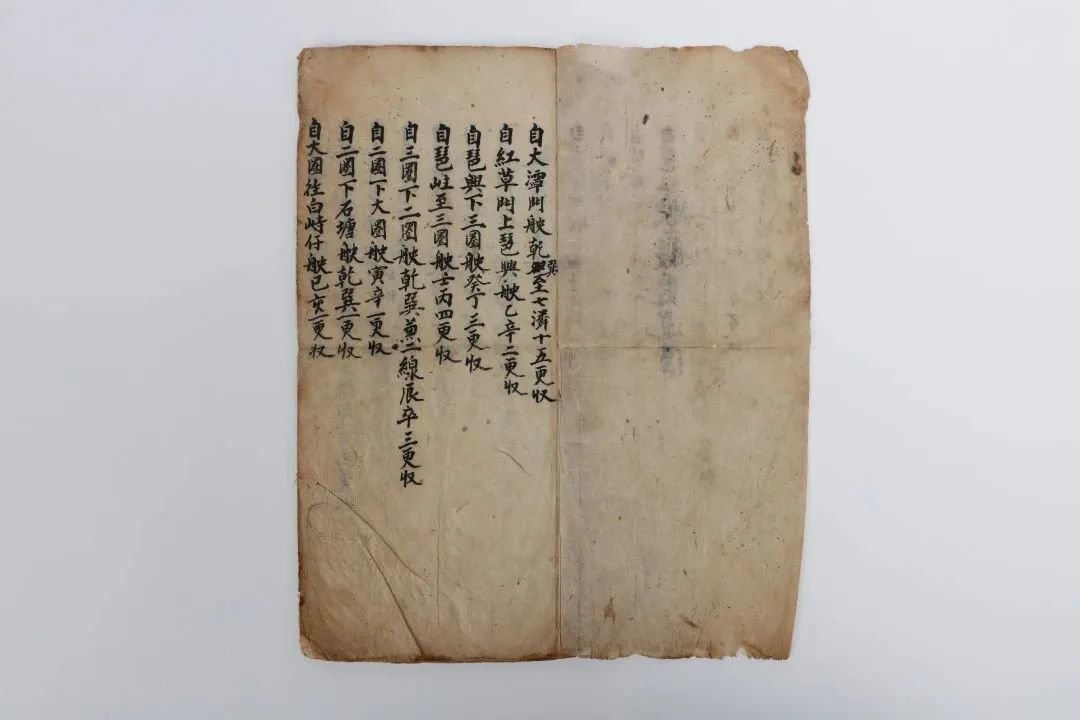 自大潭門駛乾巽至七潾十五更收
自紅草門上琶興駛乙辛二更收
自琶興下三圈駛癸丁三更收
自琶峙至三圈駛壬丙四更收
自三圈下二圈駛乾巽兼二線辰卒三更收
自二圈下大圈駛寅辛一更收
自二圈下石塘駛乾巽一更收
自大圈往白峙仔駛巳亥一更收